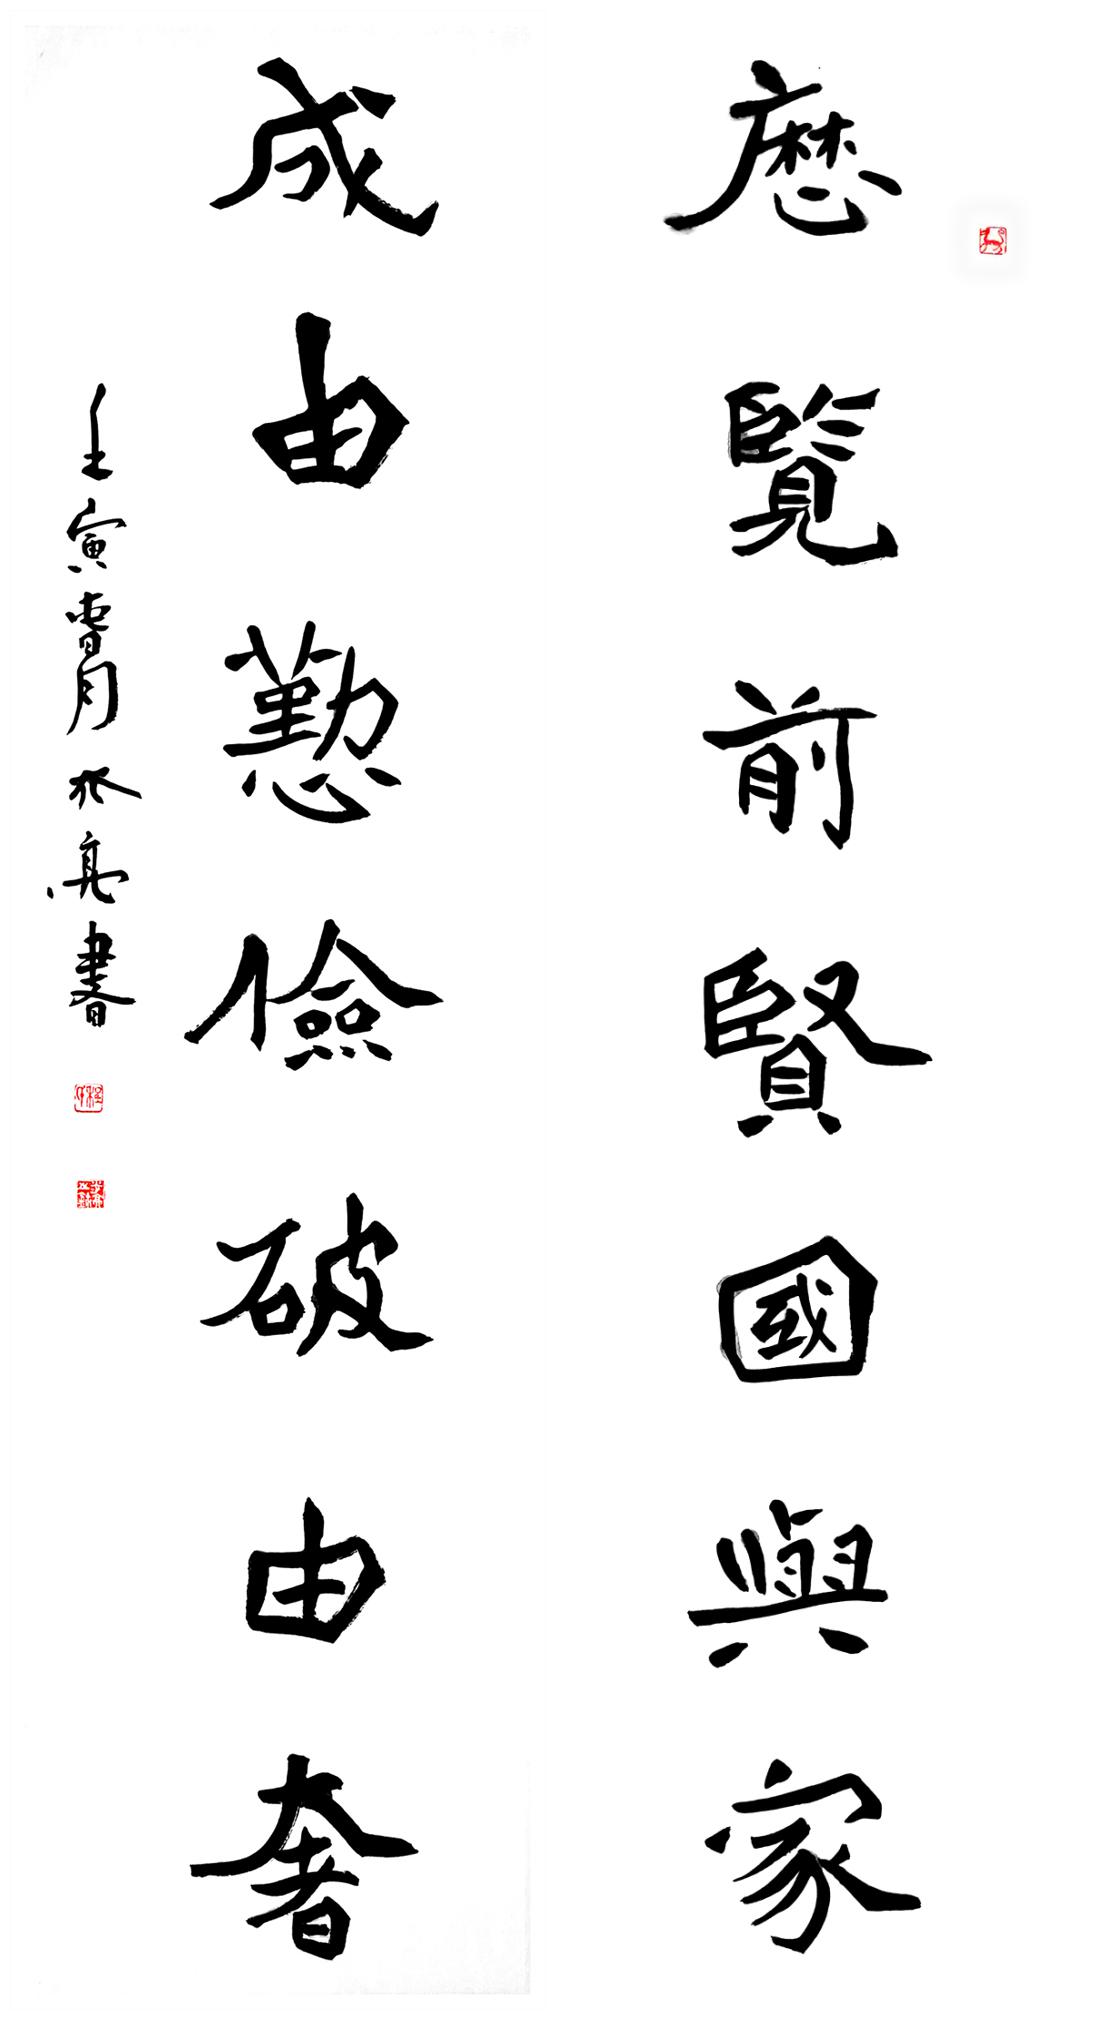 歷覽前賢國與家
成由懃儉破由奢
壬寅春月 亮書